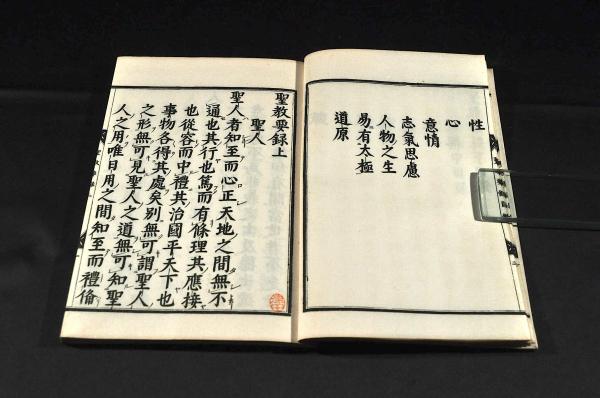 性
心
意情
志氣思慮
人物之生
易有太極
道原
聖教要録上
聖人
聖人者知至而心正天地之間無不
通也其行也篤而有條理其應接
也從容而中禮其治國平天下也
事物各得其處矣別無可謂聖人
之形無可見聖人之道無可知聖
人之用唯日用之間知至而禮備